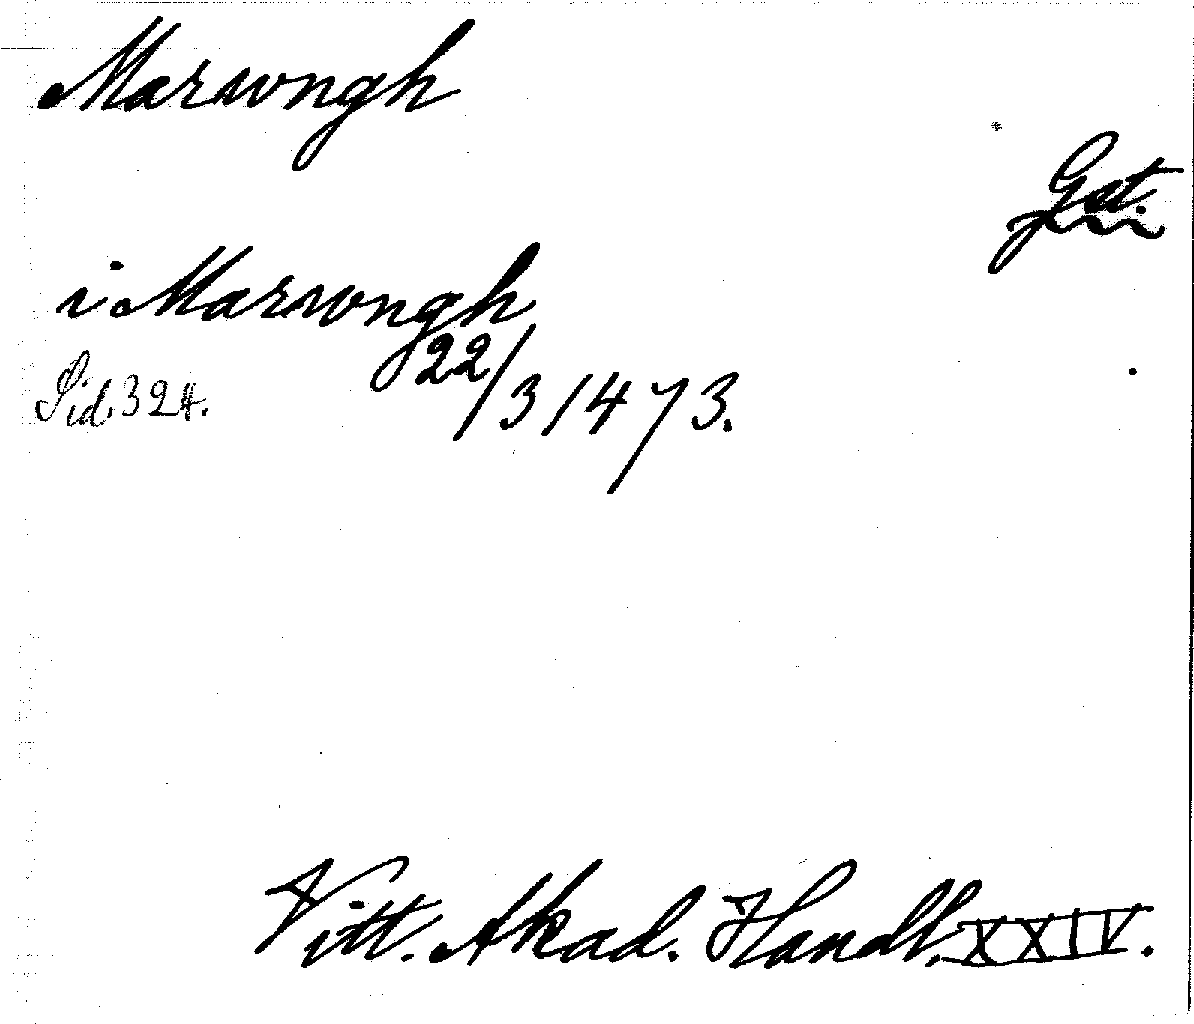 Marwngh
Gst.
i Marwngh
22/3 1473.
Sid. 324.
Vitt. Akad. Handl. XXIV.